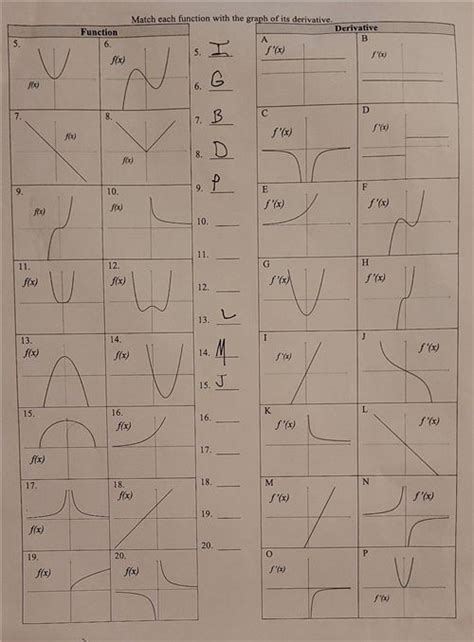 Match each function with the graph of its derivative.
Function
Derivative
5.
f(x)
6.
f(x)
7.
f(x)
8.
f(x)
9.
f(x)
10.
f(x)
11.
f(x)
12.
f(x)
13.
f(x)
14.
f(x)
15.
f(x)
16.
f(x)
17.
f(x)
18.
f(x)
19.
f(x)
20.
f(x)
5. I
6. G
7. B
8. D
9. P
10.
11.
12.
13. L
14. M
15. J
16.
17.
18.
19.
20.
A
f'(x)
B
f'(x)
C
f'(x)
D
f'(x)
E
f'(x)
F
f'(x)
G
f'(x)
H
f'(x)
I
f'(x)
J
f'(x)
K
f'(x)
L
f'(x)
M
f'(x)
N
f'(x)
O
f'(x)
P
f'(x)